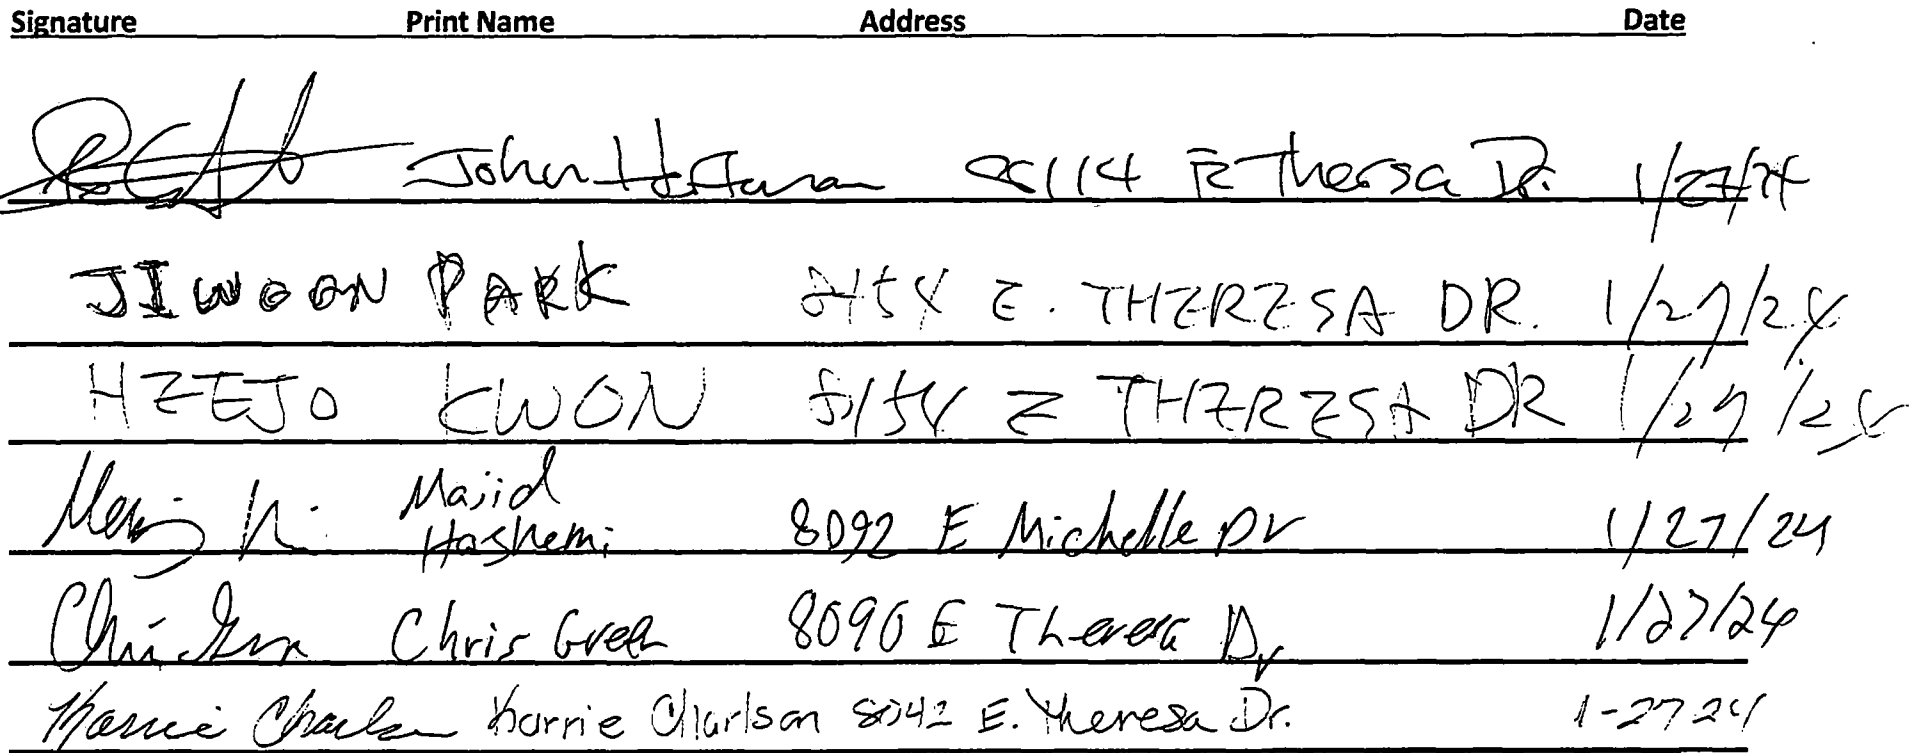 Signature Print Name Address Date
John Hoffman 8114 E Thersa Dr. 1/27/24
JIWOON PARK 8158 E. THERESA DR. 1/27/24
HEEJO KWON 8158 E THERESA DR 1/27/24
Majid
Hashemi 8092 E Michelle Dr 1/27/24
Chris Green Chris Green 8090 E Theresa Dr 1/27/24
Karrie Charlson Karrie Charlson 8042 E. Theresa Dr. 1-27 24